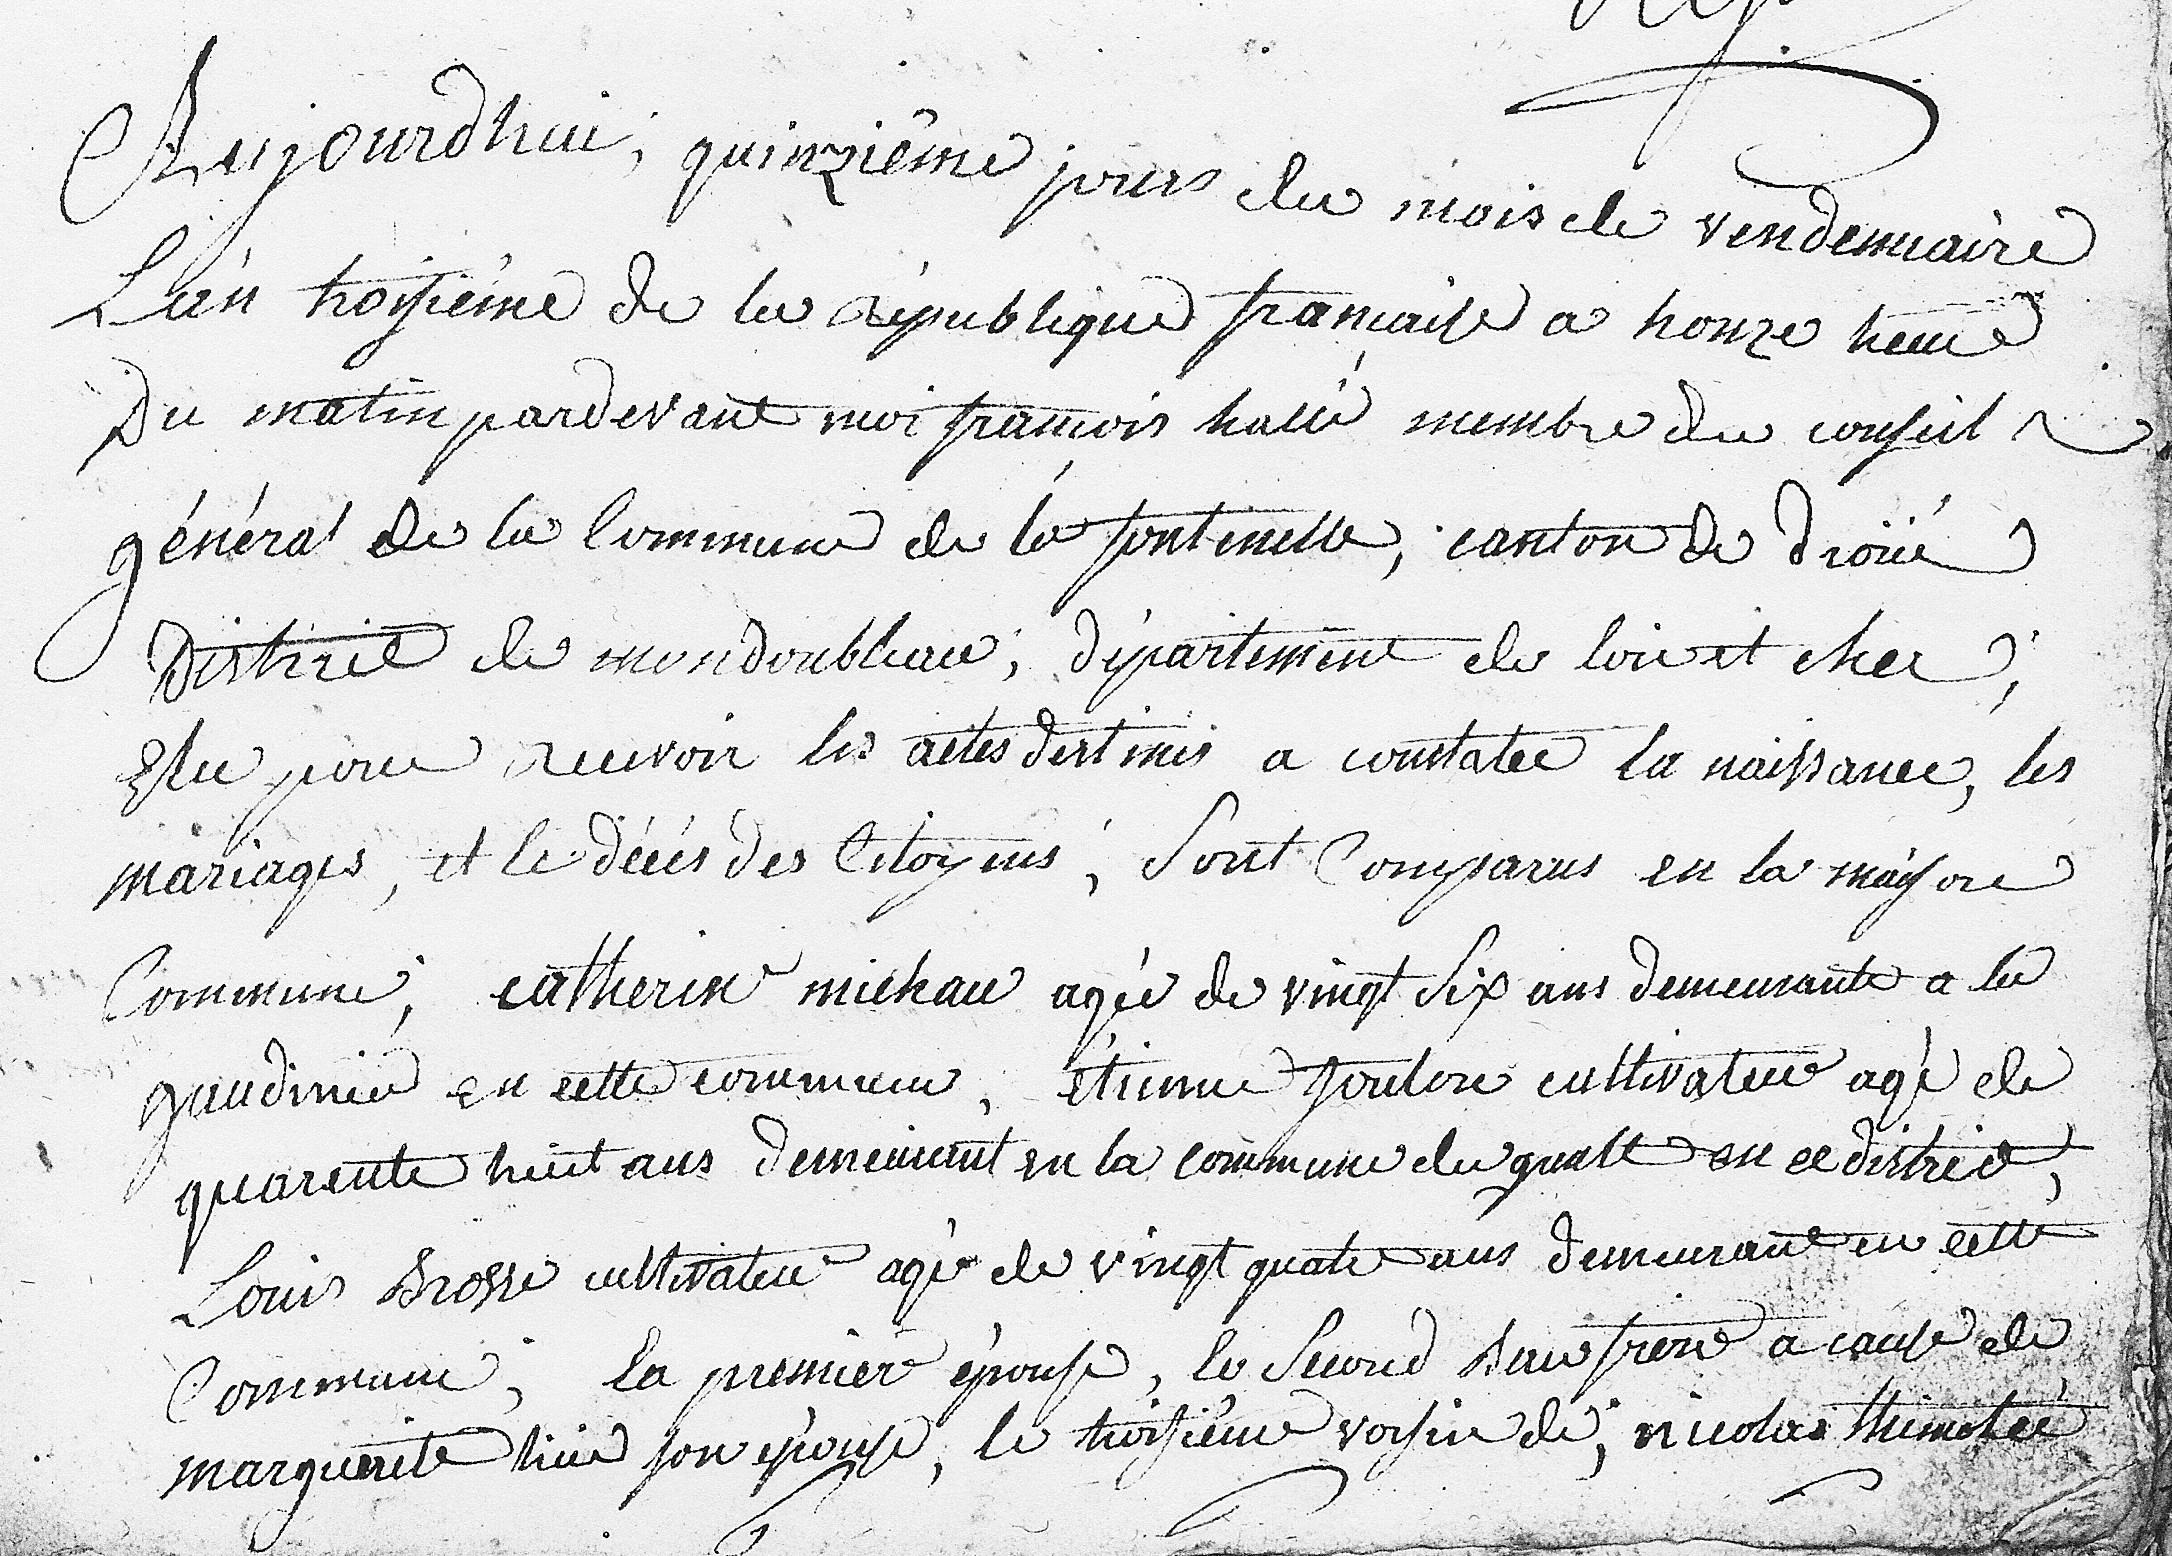 Aujourdhui, quinzième jours du mois de vendemiaire
L'an troisième de la république française a honze heure
Du matin pardevant moi françois hallé membre du conseil
général de la Commune de la fontenelle, canton de droüé
District de mondoubleau, département de loir et cher,
Elu pour recevoir les actes destinés a constater la naissance, les
mariages, et le décés des Citoyens, Sont Comparus en la maison
Commune, catherine michau agée de vingt Six ans demeurante a la
gaudiniere en cette commune, étienne foulon cultivateur agé de
quarente huit ans demeurant en la commune du gault en ce district,
Louis Brosse cultivateur agé de vingt quatre ans demeurant en cette
Commune, la premier épouse, le Second Beaufrere a cause de
marguerite son épouse, le troisième voisin de, nicolas thimotée